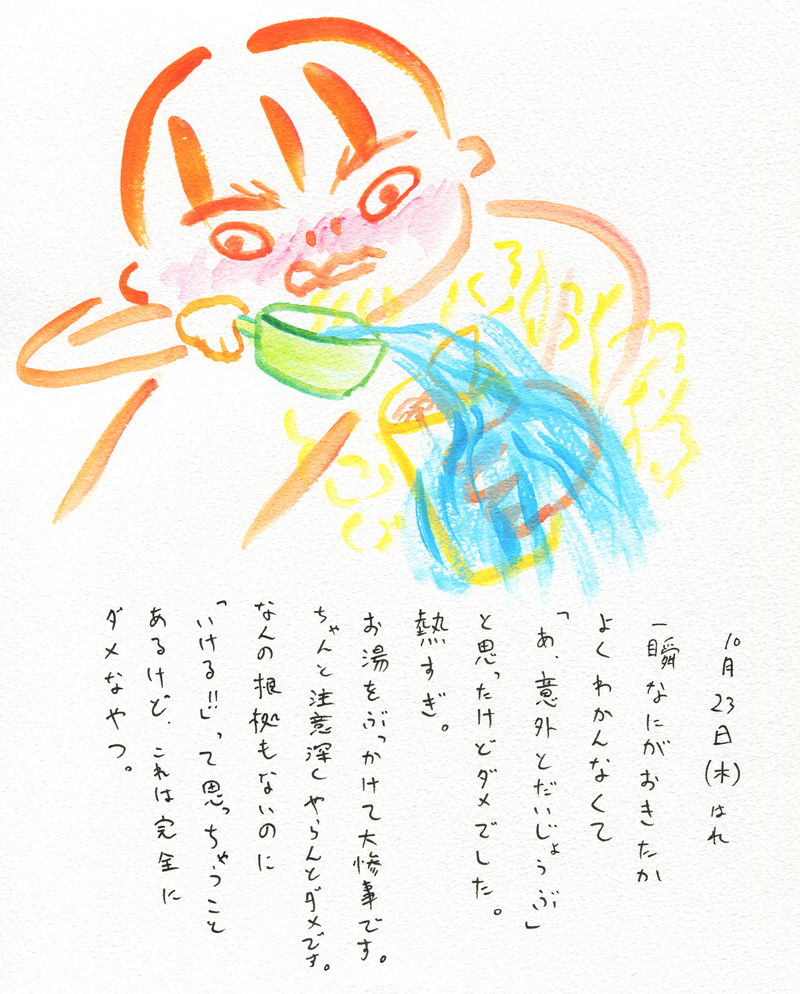 10月23日(木)はれ
一瞬なにがおきたか
よくわかんなくて
「あ、意外とだいじょうぶ」
と思ったけどダメでした。
熱すぎ。
お湯をぶっかけて大惨事です。
ちゃんと注意深くやらんとダメです。
なんの根拠もないのに
「いける!!」って思っちゃうこと
あるけど、これは完全に
ダメなやつ。